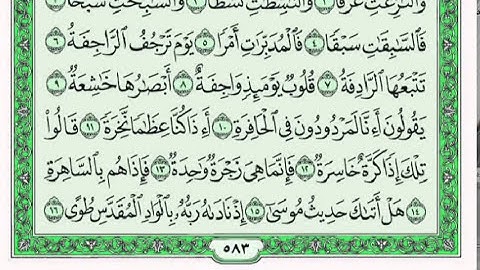 وَٱلنَّٰزِعَٰتِ غَرۡقٗا ١ وَٱلنَّٰشِطَٰتِ نَشۡطٗا ٢ وَٱلسَّٰبِحَٰتِ سَبۡحٗا ٣
فَٱلسَّٰبِقَٰتِ سَبۡقٗا ٤ فَٱلۡمُدَبِّرَٰتِ أَمۡرٗا ٥ يَوۡمَ تَرۡجُفُ ٱلرَّاجِفَةُ ٦
تَتۡبَعُهَا ٱلرَّادِفَةُ ٧ قُلُوبٞ يَوۡمَئِذٖ وَاجِفَةٌ ٨ أَبۡصَٰرُهَا خَٰشِعَةٞ ٩
يَقُولُونَ أَءِنَّا لَمَرۡدُودُونَ فِي ٱلۡحَافِرَةِ ١٠ أَءِذَا كُنَّا عِظَٰمٗا نَّخِرَةٗ ١١ قَالُواْ
تِلۡكَ إِذٗا كَرَّةٌ خَاسِرَةٞ ١٢ فَإِنَّمَا هِيَ زَجۡرَةٞ وَٰحِدَةٞ ١٣ فَإِذَا هُم بِٱلسَّاهِرَةِ
١٤ هَلۡ أَتَىٰكَ حَدِيثُ مُوسَىٰٓ ١٥ إِذۡ نَادَىٰهُ رَبُّهُۥ بِٱلۡوَادِ ٱلۡمُقَدَّسِ طُوًى ١٦
٥٨٣